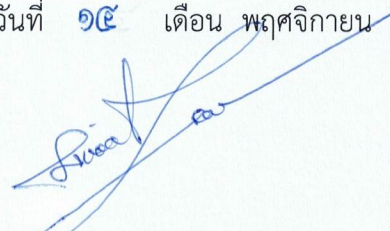 วันที่ ๑๕ เดือน พฤศจิกายน